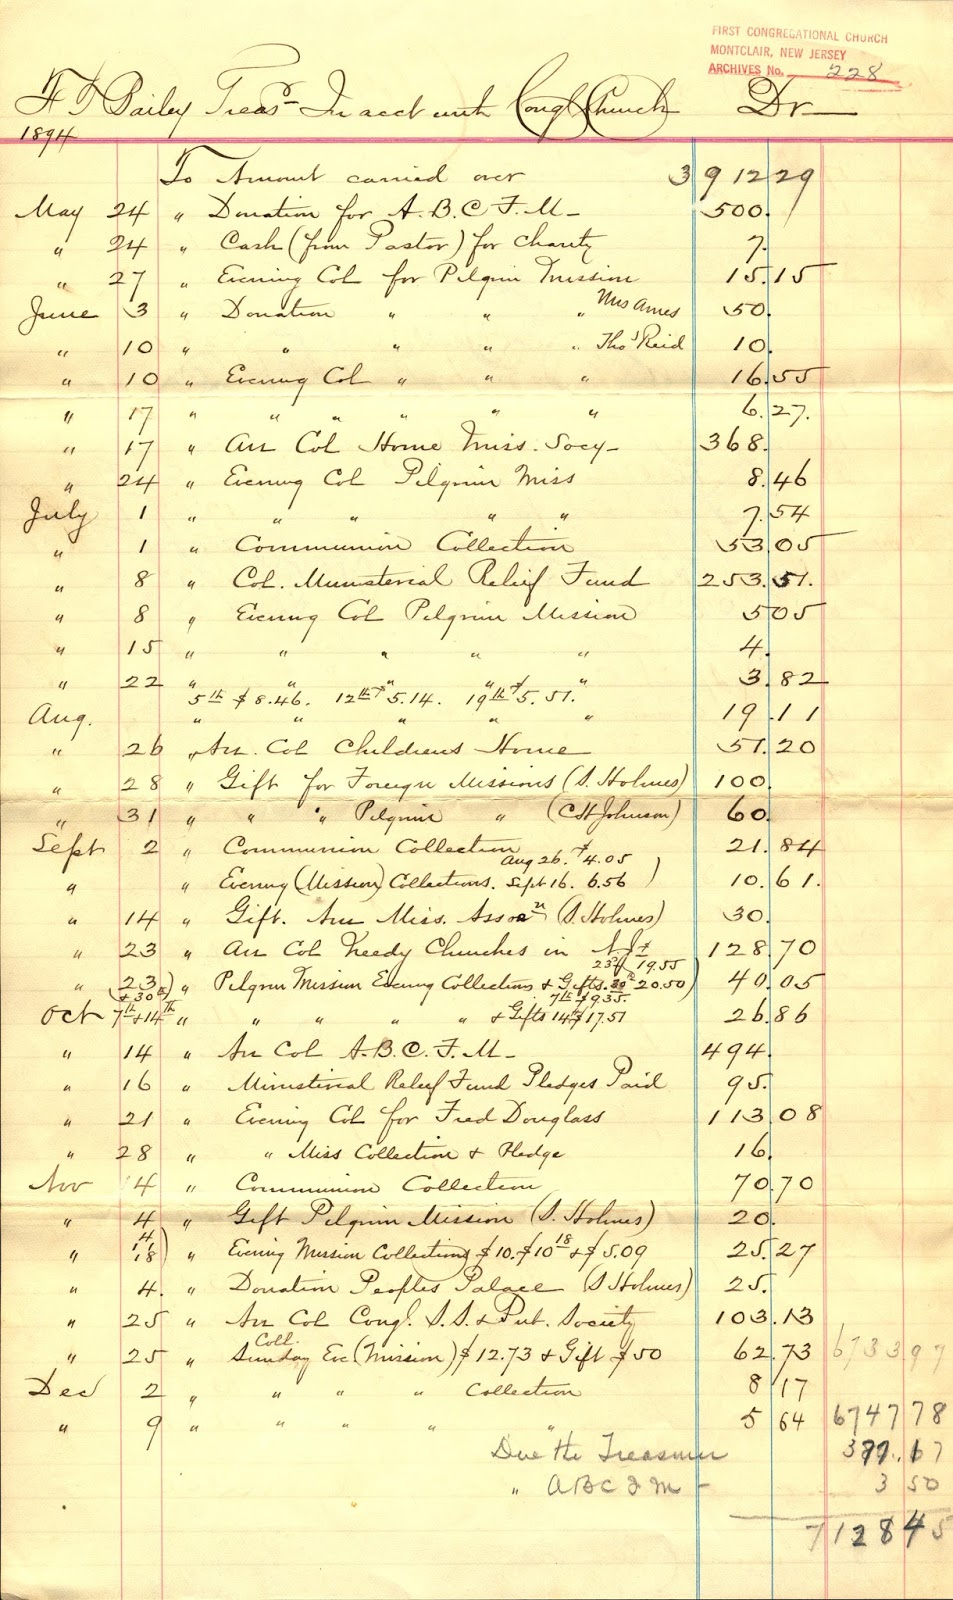 FIRST CONGREGATIONAL CHURCH
MONTCLAIR, NEW JERSEY
ARCHIVES No. 228
Bailey Treasr In acct with Congl Church Dr
1894
To Amount carried over 3912 29
May 24 " Donation for A.B.C.F.M- 500.
" 24 " Cash (from Pastor) for charity 7.
" 27 " Evening Col for Pilgrim Mission 15.15
June 3 " Donation " " " Mrs Ames 50.
" 10 " " " " " Thos Reid 10.
" 10 " Evening Col " " " 16.55
" 17 " " " " " " 6.27.
" 17 " An Col Home Miss. Socy- 368.
" 24 " Evening Col Pilgrim Miss 8.46
July 1 " " " " " 7.54
" 1 " Communion Collection 53.05
" 8 " Col. Ministerial Relief Fund 253.51.
" 8 " Evening Col Pilgrim Mission 5 05
" 15 " " " " " 4.
" 22 " " " " 3.82
5th $8.46. 12th $5.14. 19th $5.51.
Aug. " " " " " 19.11
" 26 " An. Col Childrens Home 51.20
" 28 " Gift for Foreign Missions (S. Holmes) 100.
" 31 " " " Pilgrim " (C H Johnson) 60.
Sept 2 " Communion Collection 21.84
Aug 26. $4.05
" " Evening (Mission) Collections. Sept 16. 6.56 ) 10.61.
" 14 " Gift. Am Miss. Assocn (S. Holmes) 30.
" 23 " An Col Needy Churches in N.J. 128.70
23d 19.55
" 23 " Pilgrim Mission Evening Collections & Gifts. 30th 20.50) 40.05
(& 30th) 7th $9.35.
Oct 7th & 14th " " " " " & Gifts 14th $17.51 26.86
" 14 " An Col A.B.C.F.M- 494.
" 16 " Ministerial Relief Fund Pledges Paid 95.
" 21 " Evening Col for Fred Douglass 113.08
" 28 " " Miss Collection & Pledge 16.
Nov 4 " Communion Collection 70.70
" 4 " Gift Pilgrim Mission (S. Holmes) 20.
" 4 11 18) " Evening Mission Collections $10. $10 18 & $5.09 25.27
" 4. " Donation Peoples Palace (S Holmes) 25.
" 25 " An Col Congl. S.S. & Pub. Society 103.13
Coll.
" 25 " Sunday Eve (Mission) $12.73 & Gift $50 62.73 6733 97
Dec 2 " " " " Collection 8 17
" 9 " " " " " 5 64 6747 78
Due the Treasurer 377.17
" A B C F M - 3 50
7128 45